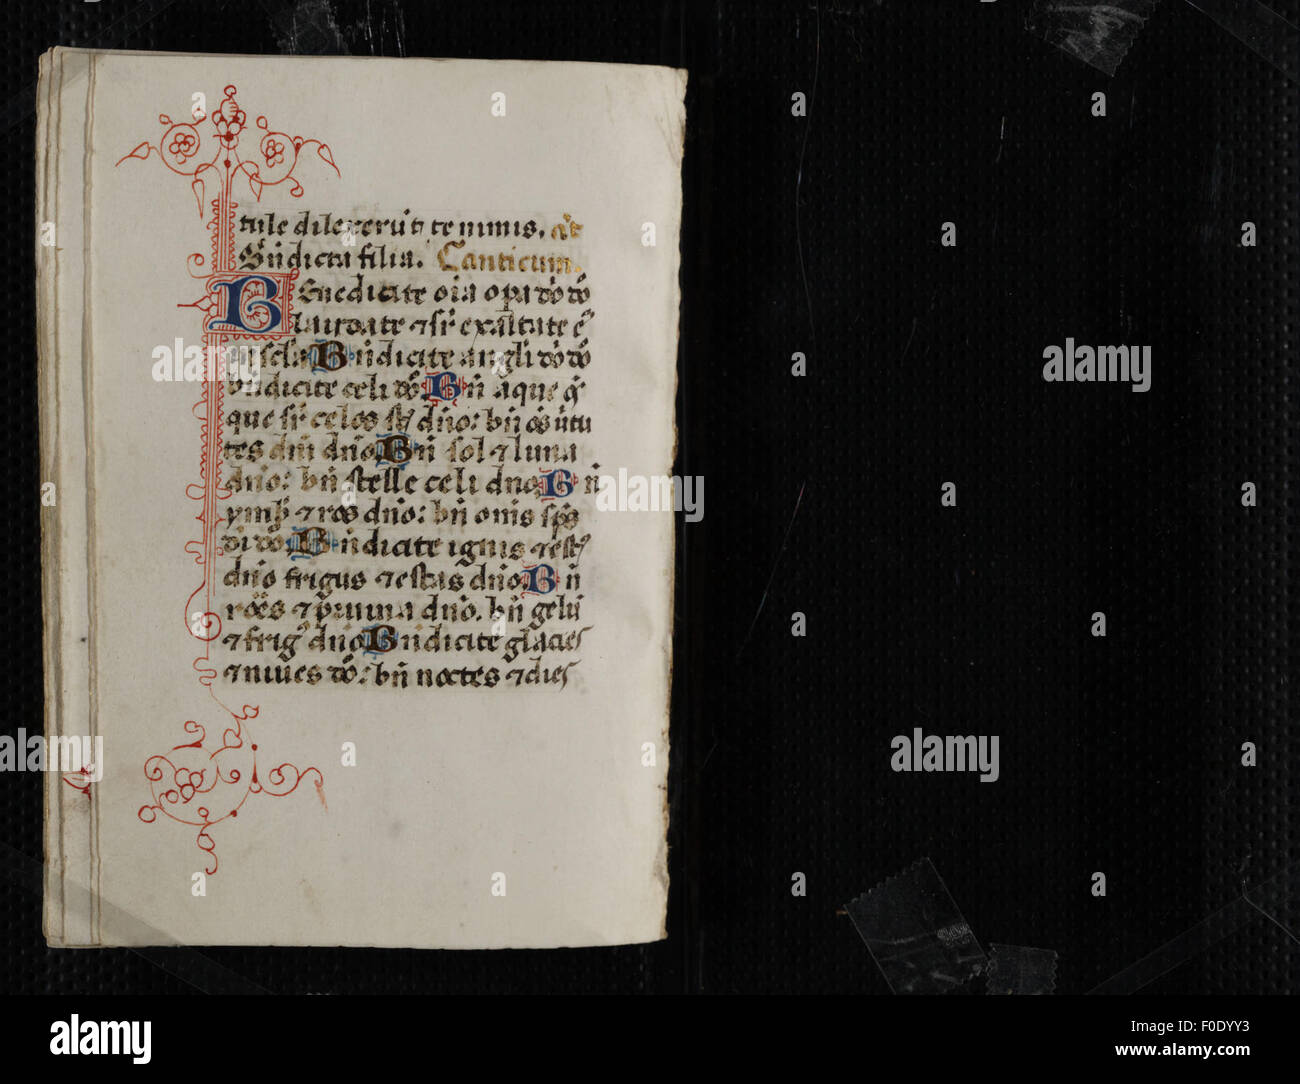 tule dilexerūt te nimis. ā
Bn̄dicta filia. Canticum.
BEnedicite oīa opa dō dō
laudate ⁊ sr̄ exaltate ē
in scła Bn̄dicite angli dō dō
bn̄dicite celi dō. Bn̄ aque q̄
que sr̄ celos st̄ dn̄o: bn̄ ōs ūtu
tes dn̄i dn̄o Bn̄ sol ⁊ luna
dn̄o: bn̄ stelle celi dno. Bn̄
ymb̄ ⁊ ros dn̄o: bn̄ onis sps̄
di dō. Bn̄dicite ignis ⁊ est9
dn̄o frigus ⁊ estas dn̄o. Bn̄
rōes ⁊ p̄ruina dn̄o. bn̄ gelū
⁊ frig9 dn̄o Bn̄dicite glacies
⁊ niues dō: bn̄ noctes ⁊ dies
alamy
alamy
alamy
alamy
alamy
alamy
Image ID: F0DYY3
www.alamy.com